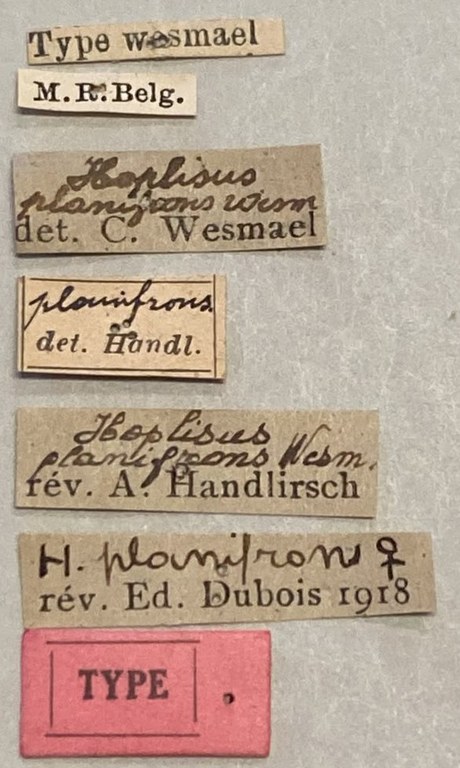 Type wesmael
M.R.Belg.
Hoplisus
planifrons wesm
det. C. Wesmael
planifrons
det. Handl.
Hoplisus
planifrons Wesm.
rév. A. Handlirsch
H. planifrons ♀
rév. Ed. Dubois 1918
TYPE